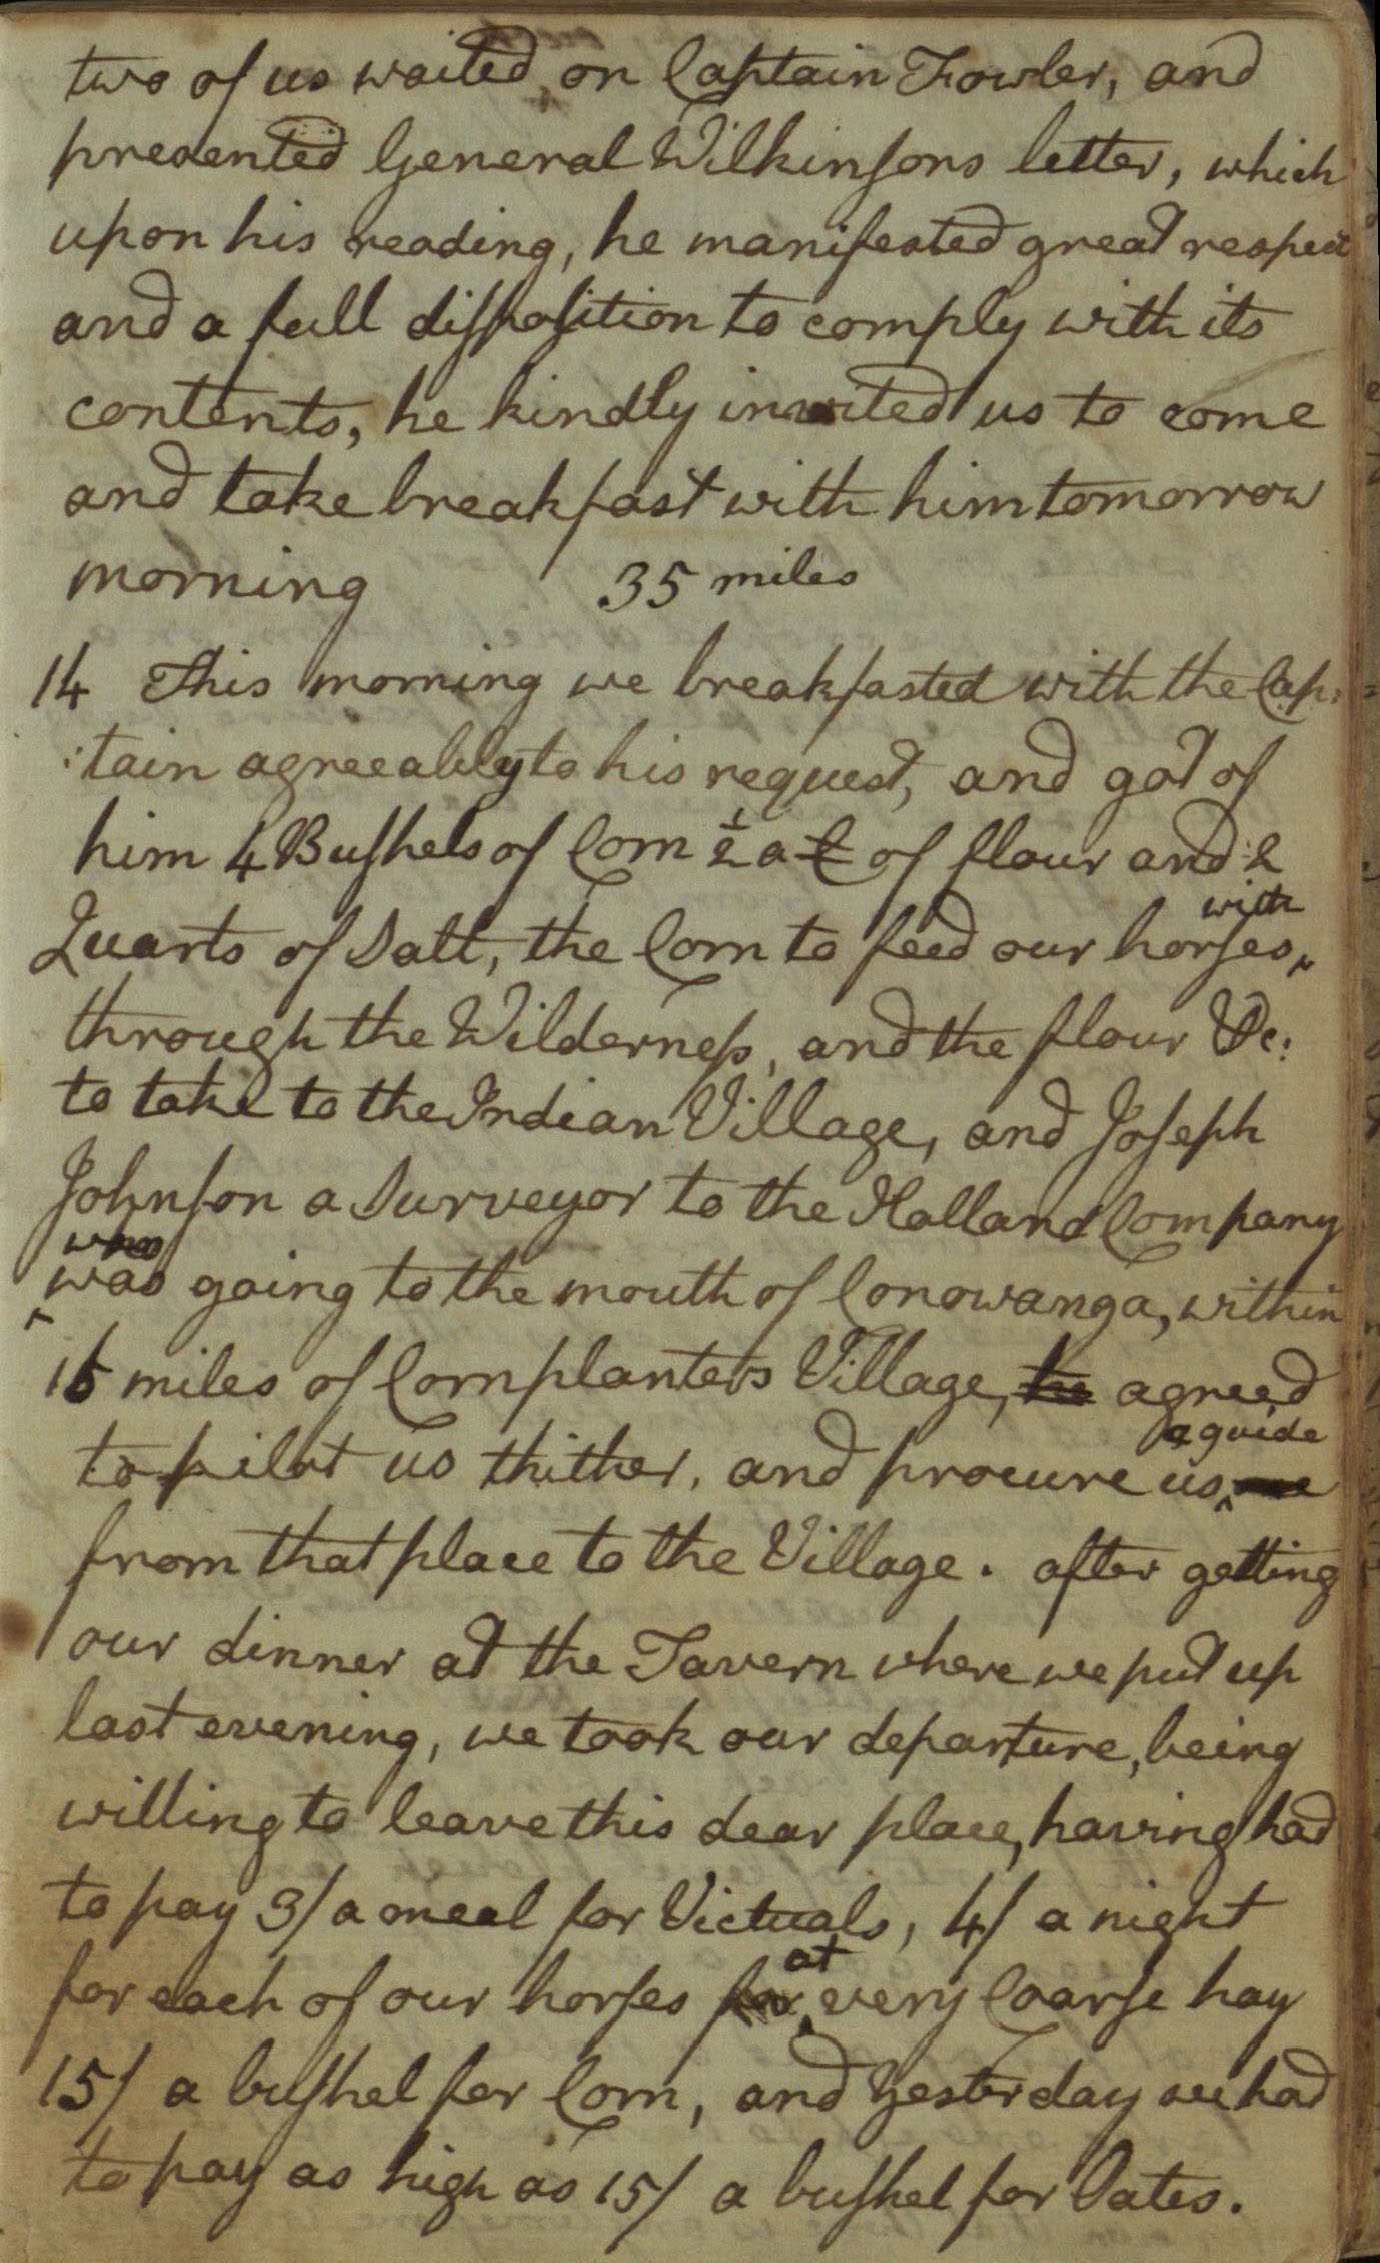 two of us waited on Captain Fowler, and
presented General Wilkinsons letter, which
upon his reading, he manifested great respect
and a full disposition to comply with its
contents, he kindly invited us to come
and take breakfast with him tomorrow
morning 35 miles
14 This morning we breakfasted with the Cap:
:tain agreeably to his request, and got of
him 4 Bushels of Corn ½ a C of flour and 2
with
Quarts of Salt, the Corn to feed our horses
through the Wilderness, and the flour &c:
to take to the Indian Village, and Joseph
Johnson a Surveyor to the Holland Company
who
was going to the mouth of Conowanga, within
16 miles of Cornplanters Village, he agreed
a guide
to pilot us thither, and procure us one
from that place to the Village. after getting
our dinner at the Tavern where we put up
last evening, we took our departure, being
willing to leave this dear place, having had
to pay 3/ a meal for Victuals, 4/ a night
at
for each of our horses for very Coarse hay
15/ a bushel for Corn, and yesterday we had
to pay as high as 15/ a bushel for Oates.